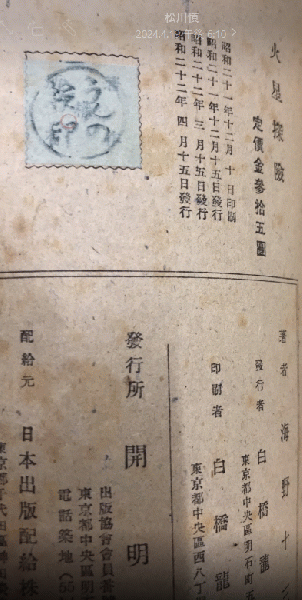 松川慎
火星探險
定價金參拾五圓
昭和二十一年十二月十日印刷
昭和二十一年十二月十五日發行
昭和二十二年三月十五日發行
昭和二十二年四月十五日發行
うんの
檢印
著者 海野十
發行者 白橋龍
東京都中央區明石町
印刷者 白橋龍
東京都中央區西八丁
發行所 開明
出版協會會員番
東京都中央區明
電話築地(55
配給元 日本出版配給株